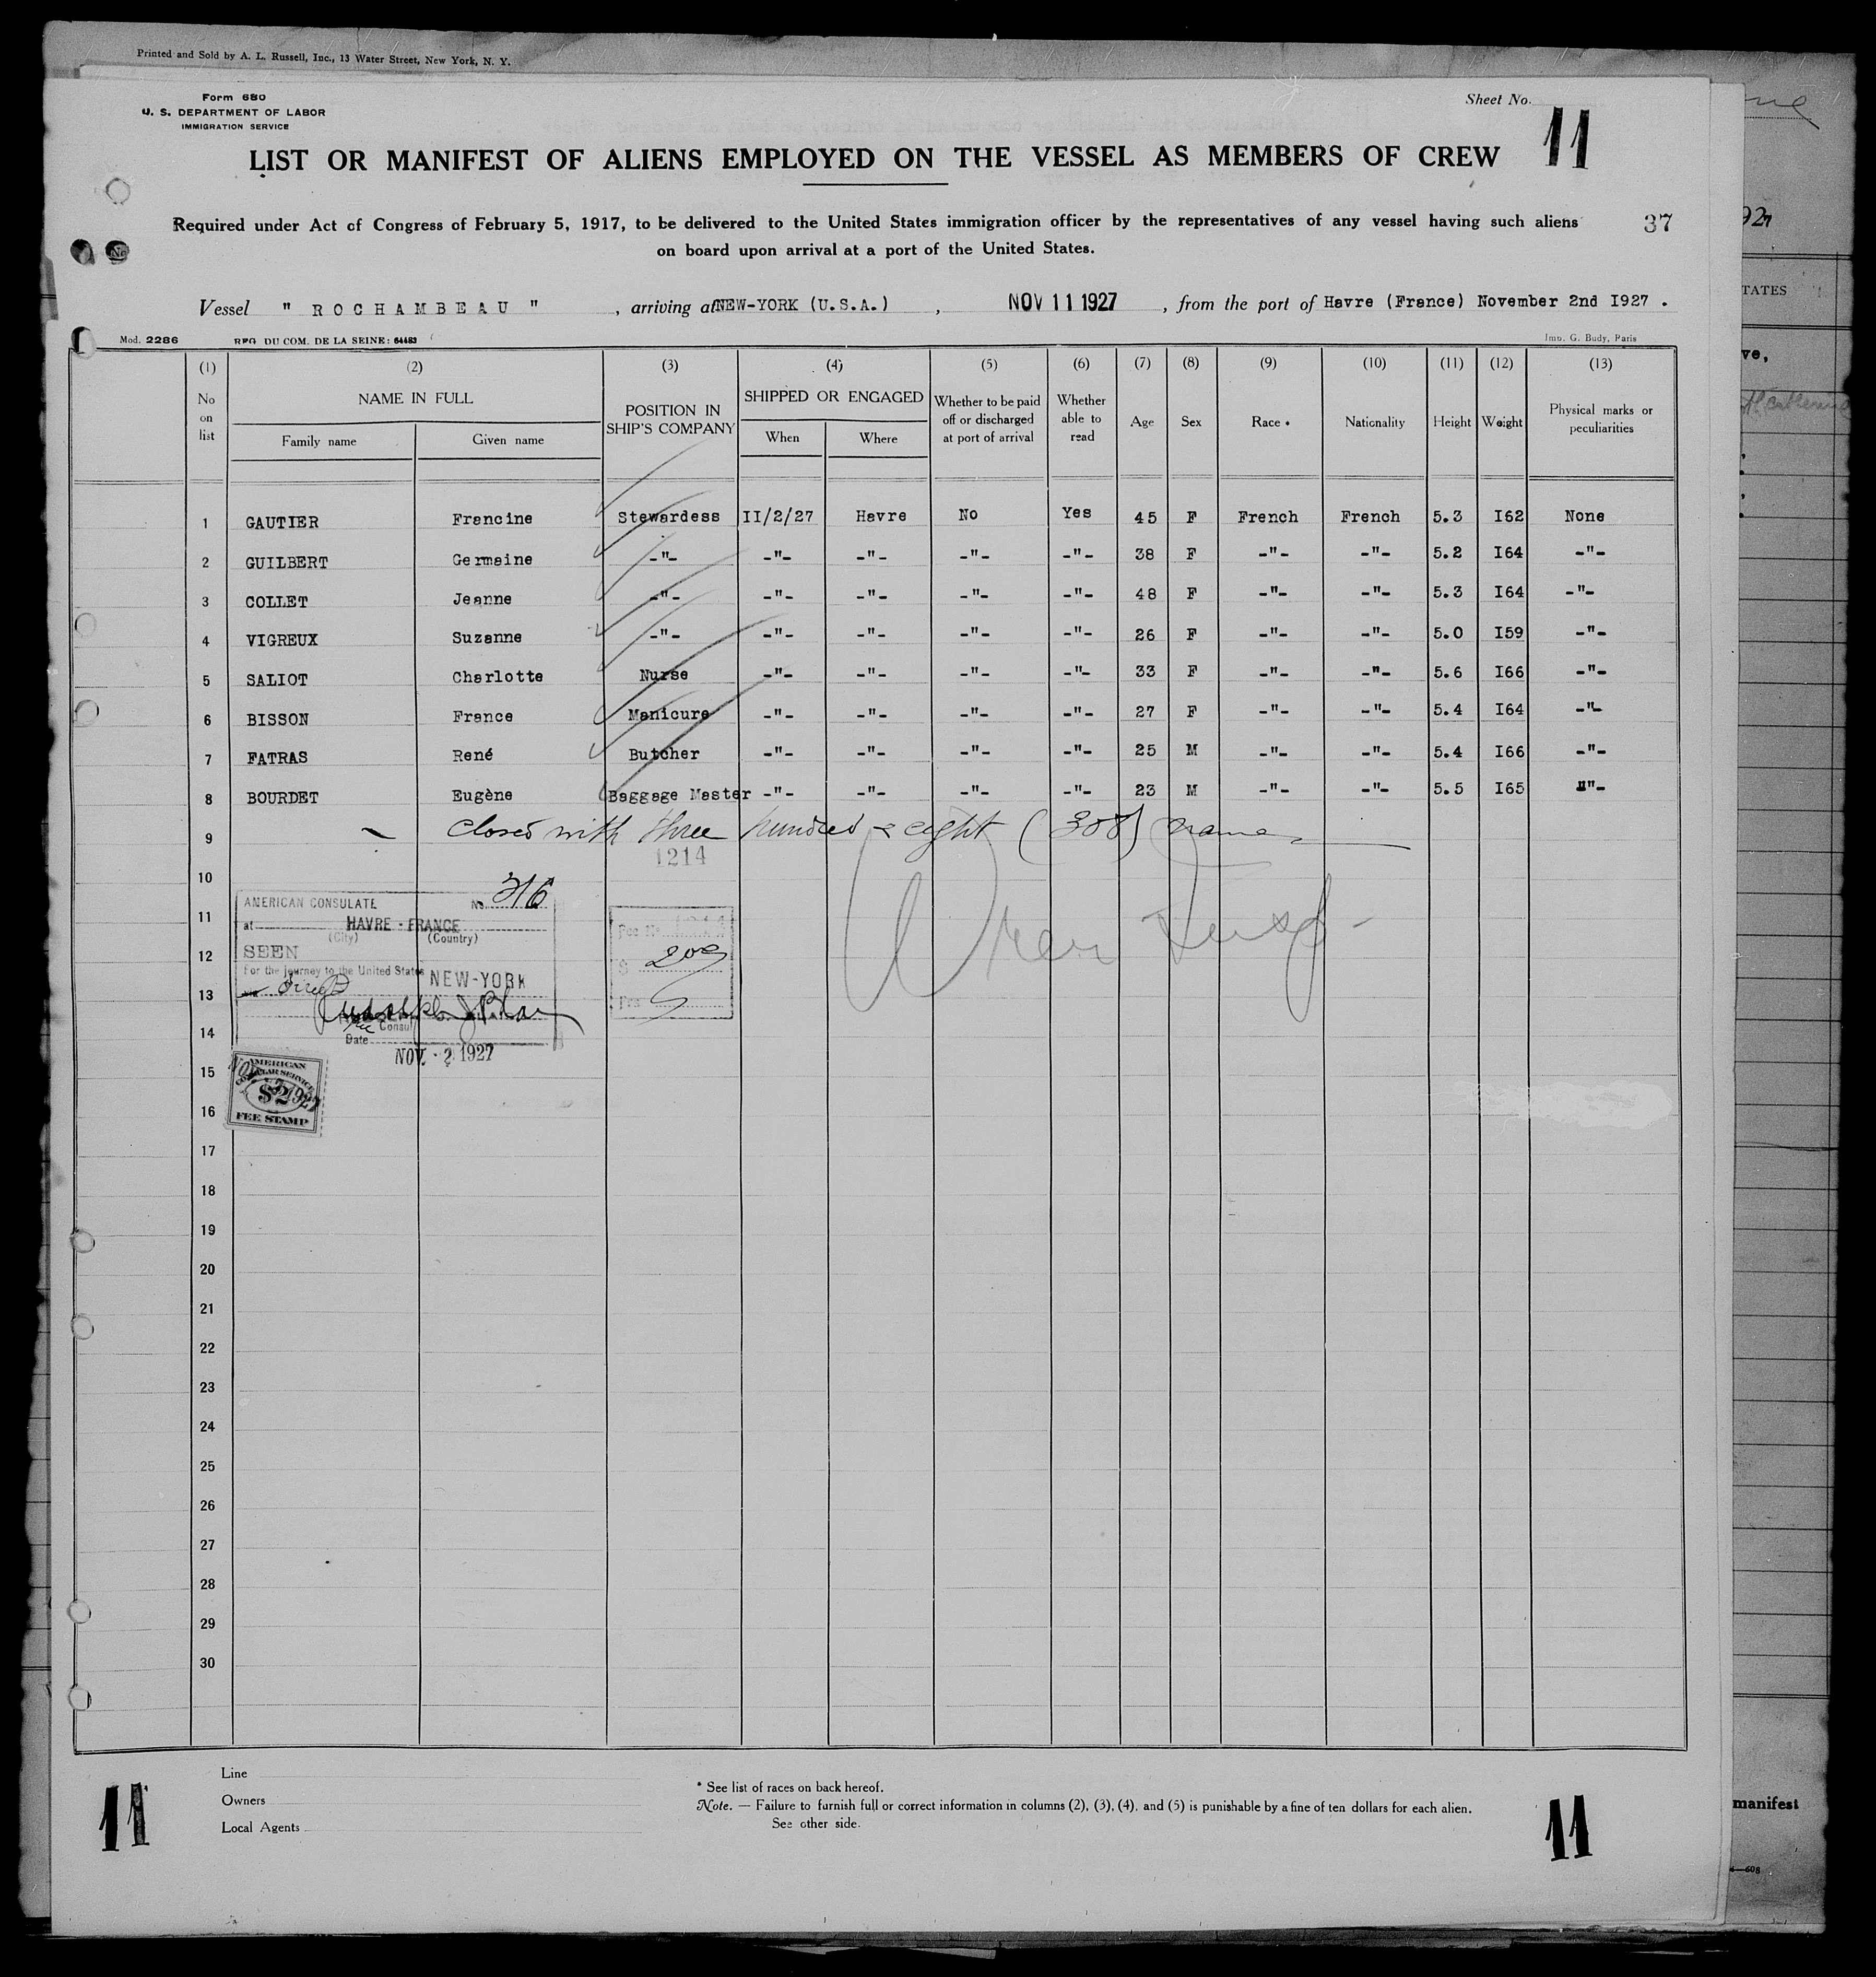 Printed and Sold by A. L. Russell, Inc., 13 Water Street, New York, N. Y.
Form 680
U. S. DEPARTMENT OF LABOR
IMMIGRATION SERVICE
Sheet No.
11
LIST OR MANIFEST OF ALIENS EMPLOYED ON THE VESSEL AS MEMBERS OF CREW
Required under Act of Congress of February 5, 1917, to be delivered to the United States immigration officer by the representatives of any vessel having such aliens
on board upon arrival at a port of the United States.
37
Vessel " ROCHAMBEAU " , arriving at NEW-YORK (U.S.A.) , NOV 11 1927 , from the port of Havre (France) November 2nd I927 .
Mod. 2286 REG. DU COM. DE LA SEINE: 64483 Imp. G. Budy, Paris
(1) (2) (3) (4) (5) (6) (7) (8) (9) (10) (11) (12) (13)
No on list NAME IN FULL POSITION IN SHIP'S COMPANY SHIPPED OR ENGAGED Whether to be paid off or discharged at port of arrival Whether able to read Age Sex Race * Nationality Height Weight Physical marks or peculiarities
Family name Given name When Where
1 GAUTIER Francine Stewardess II/2/27 Havre No Yes 45 F French French 5.3 I62 None
2 GUILBERT Germaine -"- -"- -"- -"- -"- 38 F -"- -"- 5.2 I64 -"-
3 COLLET Jeanne -"- -"- -"- -"- -"- 48 F -"- -"- 5.3 I64 -"-
4 VIGREUX Suzanne -"- -"- -"- -"- -"- 26 F -"- -"- 5.0 I59 -"-
5 SALIOT Charlotte Nurse -"- -"- -"- -"- 33 F -"- -"- 5.6 I66 -"-
6 BISSON France Manicure -"- -"- -"- -"- 27 F -"- -"- 5.4 I64 -"-
7 FATRAS René Butcher -"- -"- -"- -"- 25 M -"- -"- 5.4 I66 -"-
8 BOURDET Eugène Baggage Master -"- -"- -"- -"- 23 M -"- -"- 5.5 I65 -"-
9 Closed with three hundred & eight (308) names
1214
10
11
12
13
14
15
16
17
18
19
20
21
22
23
24
25
26
27
28
29
30
AMERICAN CONSULATE No. 316
at HAVRE - FRANCE
(City) (Country)
SEEN
For the journey to the United States
NEW-YORK
Consul
Date NOV. 2 1927
Fee No. 1214
$ 2.00
Frs
AMERICAN
CONSULAR SERVICE
$2
FEE STAMP
NOV 2 1927
Line
Owners
Local Agents
* See list of races on back hereof.
Note. — Failure to furnish full or correct information in columns (2), (3), (4), and (5) is punishable by a fine of ten dollars for each alien.
See other side.
11
11
927
TATES
ve,
manifest